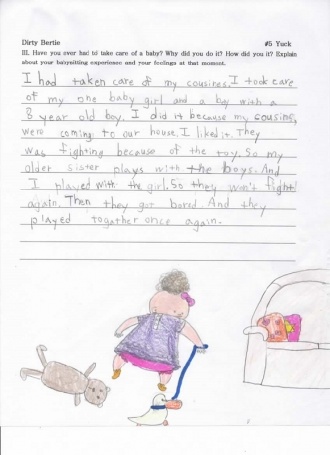 Dirty Bertie #5 Yuck
III. Have you ever had to take care of a baby? Why did you do it? How did you it? Explain
about your babysitting experience and your feelings at that moment.
I had taken care of my cousines. I took care
of my one baby girl and a boy with a
8 year old boy. I did it because my cousins,
were coming to our house. I liked it. They
was fighting because of the toy. So my
older sister plays with the boys. And
I played with the girl. So they won't fight
again. Then they got bored. And they
played together once again.